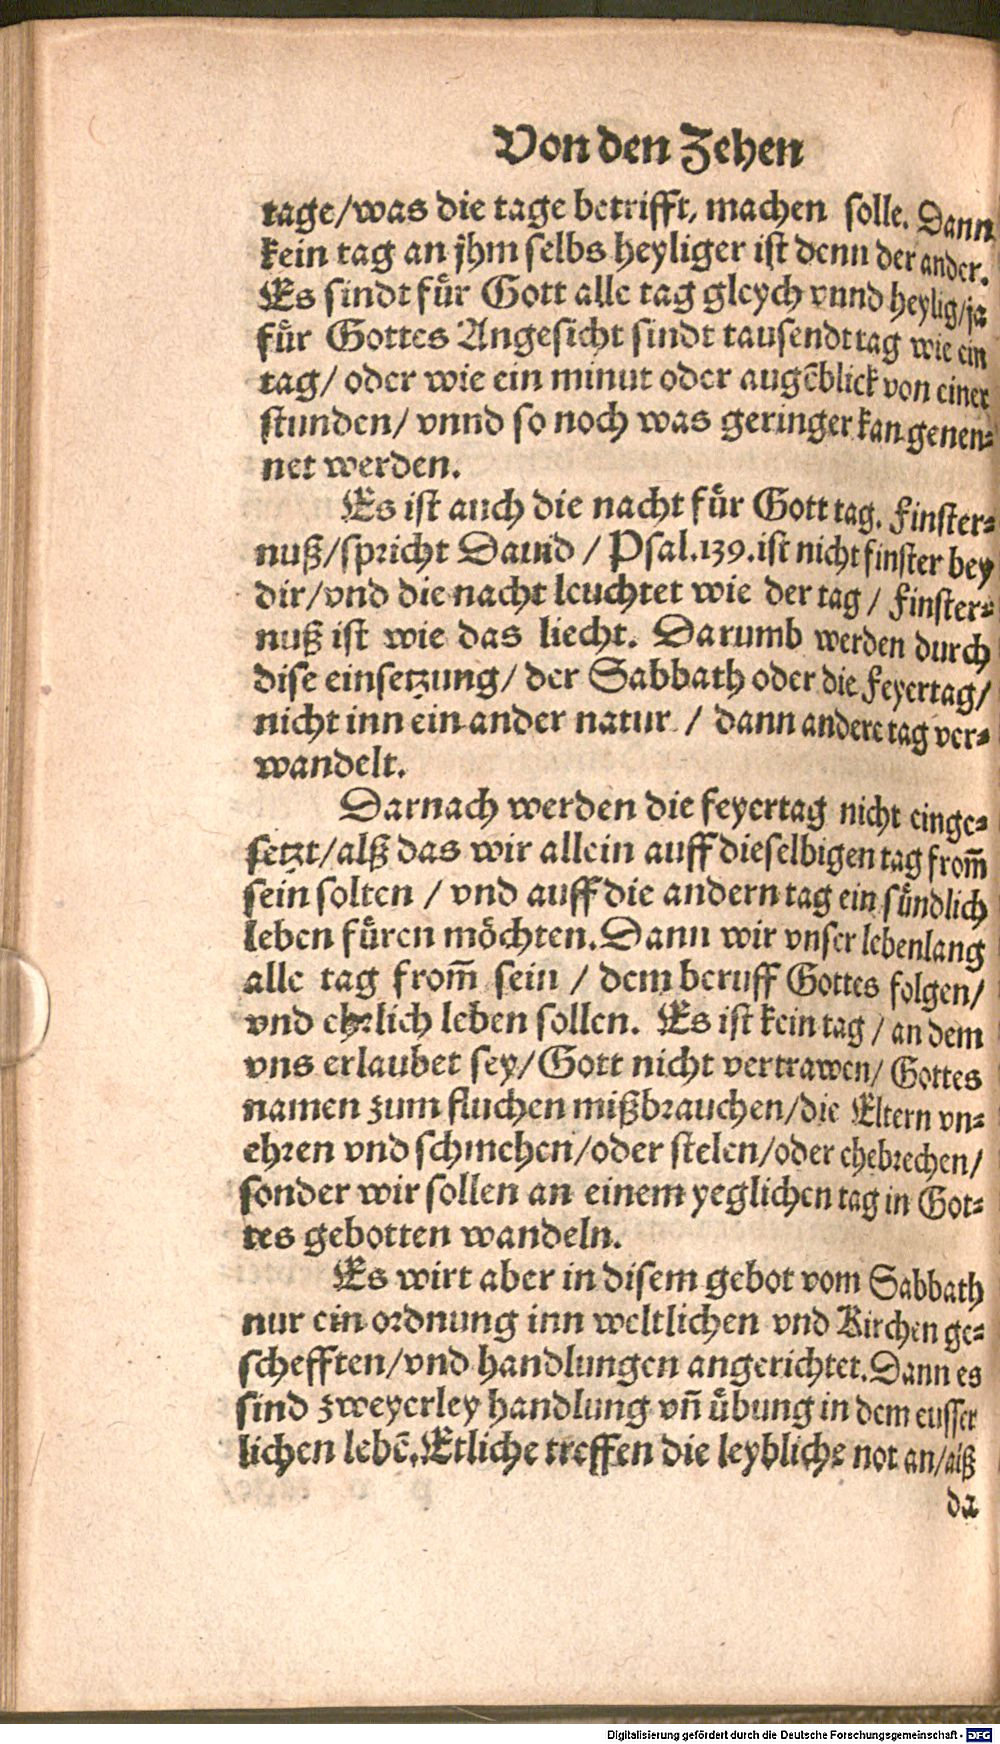 Von den Zehen
tage/was die tage betrifft, machen solle. Dann
kein tag an jhm selbs heyliger ist denn der ander.
Es sindt fuͤr Gott alle tag gleych vnnd heylig/ja
fuͤr Gottes Angesicht sindt tausendt tag wie ein
tag/ oder wie ein minut oder augēblick von einer
stunden/ vnnd so noch was geringer kan genen⸗
net werden.
Es ist auch die nacht fuͤr Gott tag. Finster⸗
nuß/spricht Dauid / Psal.139.ist nicht finster bey
dir/vnd die nacht leuchtet wie der tag / Finster⸗
nuß ist wie das liecht. Darumb werden durch
dise einsetzung/ der Sabbath oder die Feyertag/
nicht inn ein ander natur / dann andere tag ver⸗
wandelt.
Darnach werden die feyertag nicht einge⸗
setzt/alß das wir allein auff dieselbigen tag from̄
sein solten / vnd auff die andern tag ein suͤndlich
leben fuͤren moͤchten. Dann wir vnser lebenlang
alle tag from̄ sein / dem beruff Gottes folgen/
vnd ehrlich leben sollen. Es ist kein tag / an dem
vns erlaubet sey/Gott nicht vertrawen/ Gottes
namen zum fluchen mißbrauchen/die Eltern vn⸗
ehren vnd schmehen/oder stelen/oder ehebrechen/
sonder wir sollen an einem yeglichen tag in Got⸗
tes gebotten wandeln.
Es wirt aber in disem gebot vom Sabbath
nur ein ordnung inn weltlichen vnd Kirchen ge⸗
schefften/vnd handlungen angerichtet. Dann es
sind zweyerley handlung vn̄ uͤbung in dem eusser
lichen lebē. Etliche treffen die leybliche not an/alß
da
Digitalisierung gefördert durch die Deutsche Forschungsgemeinschaft - DFG